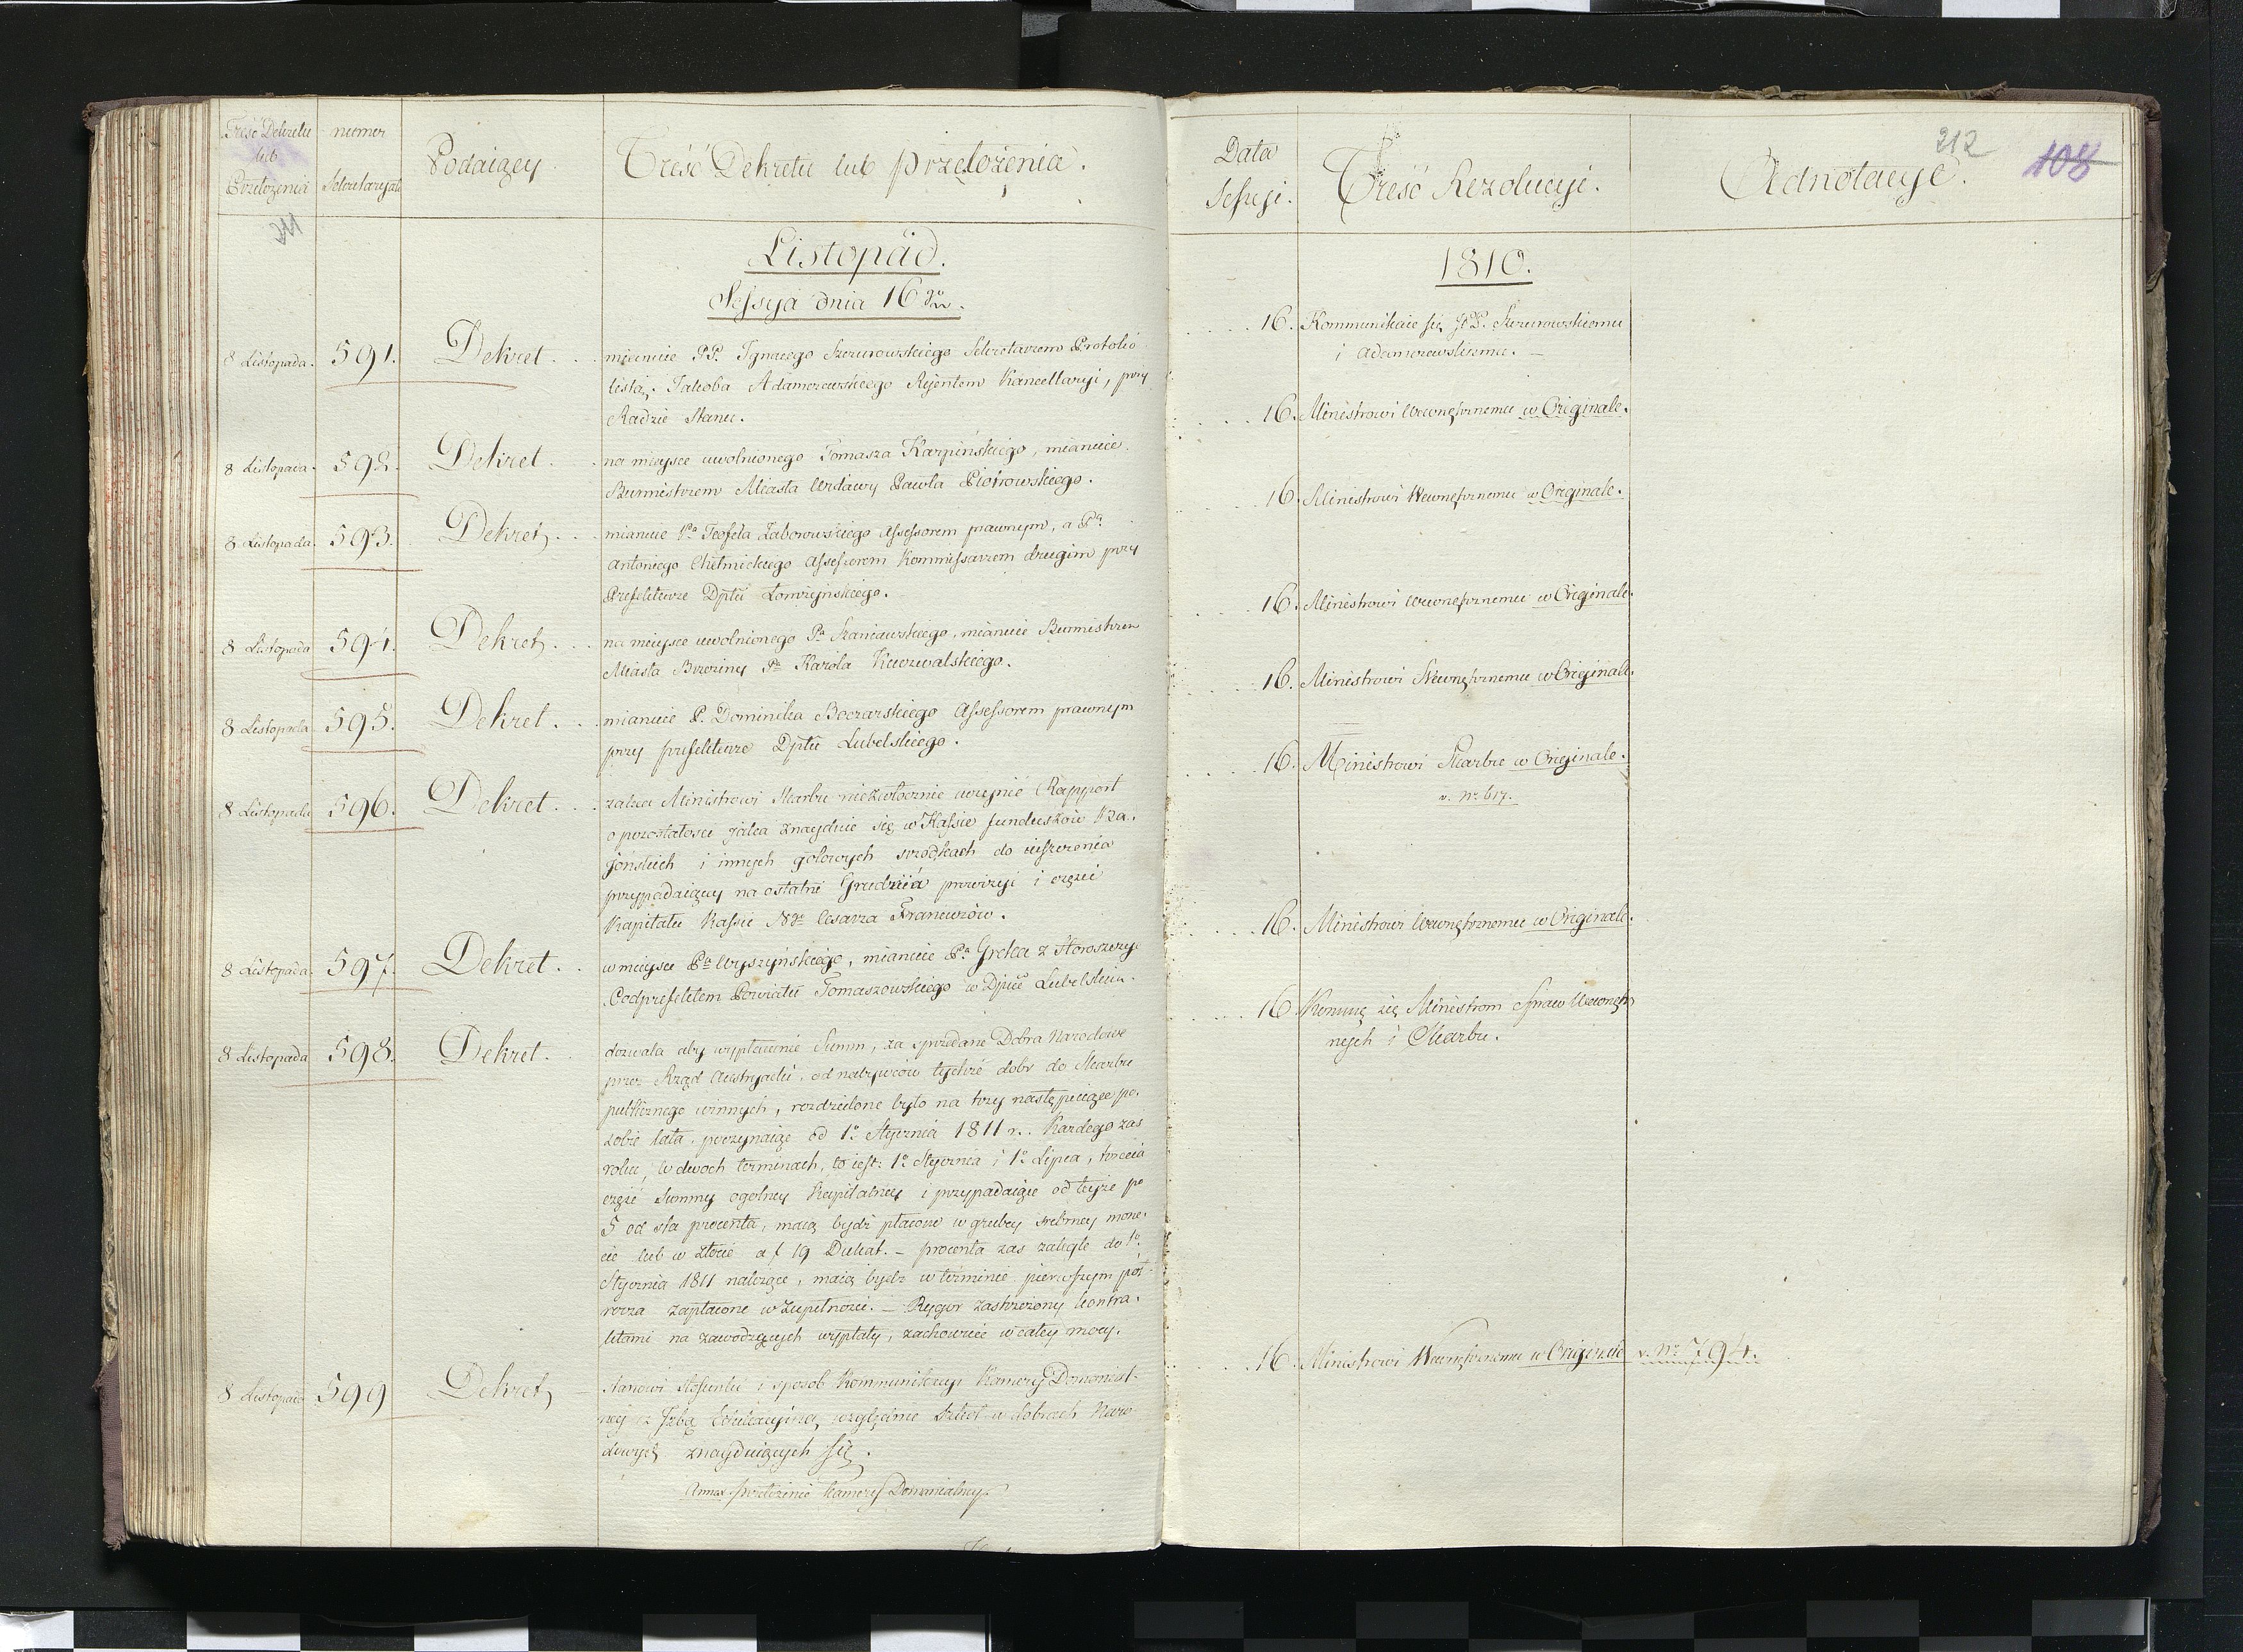 Treść Dekretu
lub
Przełożenia
numer
Sekretaryat
Podaiący
Treść Dekretu lub przełożenia.
211
Listopad.
Sessya dnia 16go.
8 Listopada. 591. Dekret. mianuie PP. Ignacego Szczurowskiego Sekretarzem Protokó-
listą, Jakoba Adamczewskiego Rejentem Kancellaryi, przy
Radzie Stanu.
8 Listopada. 592. Dekret. na mieysce uwolnionego Tomasza Karpińskiego, mianuie
Burmistrzem Miasta Pawła Piotrowskiego.
8 Listopada. 593. Dekret. mianuie Pa Teofila Zaborowskiego Assessorem prawnym, a Pa
Antoniego Chełmickiego Assessorem Kommissarzem drugim przy
Prefekturze Dptu Łomżyńskiego.
8 Listopada 594. Dekret. na mieysce uwolnionego Pa Szaniawskiego, mianuie Burmistrzem
Miasta Brzeziny Pa Karola
8 Listopada 595. Dekret. mianuie P. Dominika Boczarskiego Assessorem prawnym
przy prefekturze Dptu Lubelskiego.
8 Listopada 596. Dekret. zaleca Ministrowi Skarbu niezwłocznie uczynić Rapport
o pozostałości jaka znayduie się w Kassie funduszów Ba-
jońskich i innych gotowych srzodkach do uiszczenia
przypadaiącey na ostatni Grudnia prowizyi i części
Kapitału Kassie Nay: Cesarza Francuzów.
8 Listopada. 597. Dekret. w mieysce Pa Wyszyńskiego, mianuie Pa Greka z
Podprefektem Powiatu Tomaszowskiego w Dpcie Lubelskim.
8 Listopada 598. Dekret. dozwala aby wypłacenie Summ, za sprzedane Dobra Narodowe
przez Rząd Austryacki, od nabywców tychże dobr do Skarbu
publicznego winnych, rozdzielone było na trzy następuiące po
sobie lata, poczynaiąc od 1o Stycznia 1811 r. Każdego zas
roku, w dwoch terminach, to iest: 1o Stycznia i 1o Lipca, trzecia
część Summy ogólney Kapitalney i przypadaiące od teyże po
5 od sta procenta, maią bydź płacone w grubey srebrney mone-
cie lub w złocie a f 19 Dukat. — procenta zas zaległe do 1o
Stycznia 1811 należące, maią bydź w terminie pierwszym pół-
rocza zapłacone w zupełności. — Rygor zastrzeżony kontra-
ktami na zawodzących wypłaty, zachowuie w całey mocy.
8 Listopad 599 Dekret stanowi stosunki i sposób Kommunikacyi Kamery Domenial-
ney z Izbą Edukacyiną względnie Szkoł w dobrach Naro-
dowych znayduiących się.
Annex. przełożenie Kamery Domenialney.
Data
Sessyi.
Treść Rezolucyi.
Adnotacye.
212
108
1810.
16. Kommunikuie się PP. Szczurowskiemu
i Adamczewskiemu. —
16. Ministrowi Wewnętrznemu w Originale.
16. Ministrowi Wewnętrznemu w Originale.
16. Ministrowi Wewnętrznemu w Originale.
16. Ministrowi Wewnętrznemu w Originale.
16. Ministrowi Skarbu w Originale.
v. No 617.
16. Ministrowi Wewnętrznemu w Originale.
16 się Ministrom Spraw Wewnętrz
nych i Skarbu.
16. Ministrowi Wewnętrznemu w Originale v. No 794.